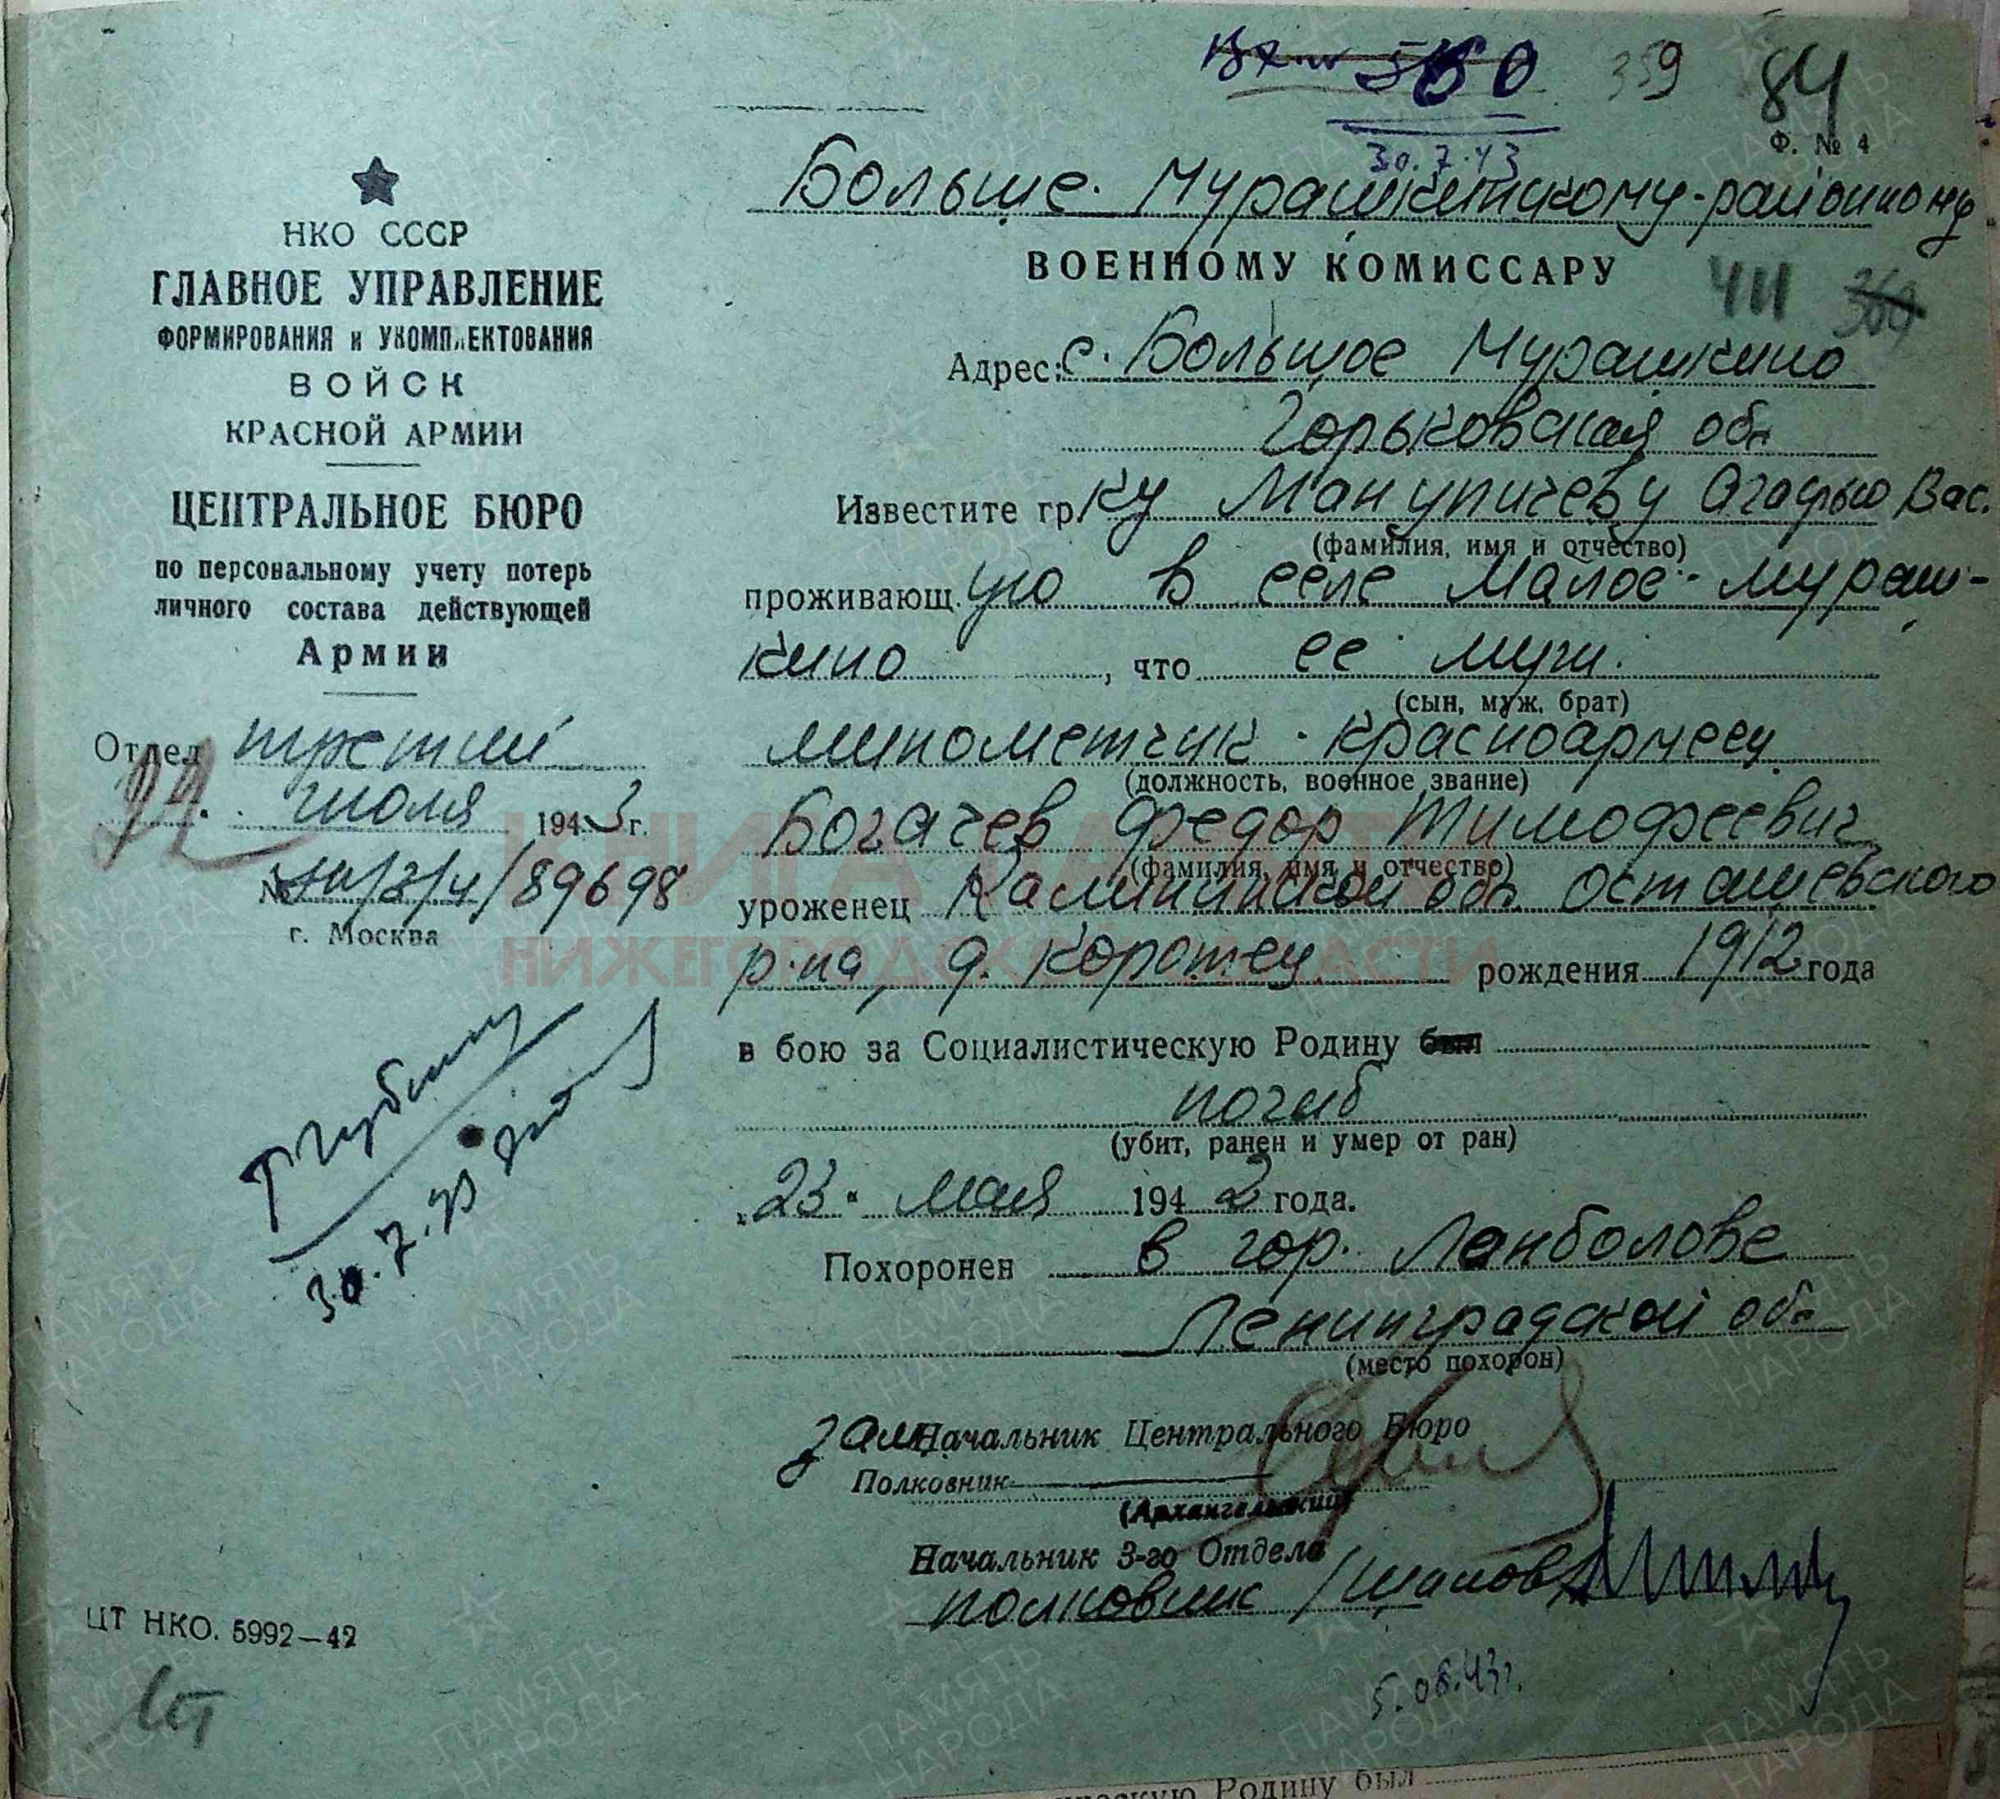 560 359 84
Ф. № 4
30.7.43
Больше-Мурашкинскому районному
ВОЕННОМУ КОМИССАРУ
411 360
Адрес: с. Большое Мурашкино
Горьковская обл
Известите гр.ку Манупичеву Агафью Вас.
(фамилия, имя и отчество)
проживающ.ую в селе Малое-Мураш-
кино, что ее муж.
(сын, муж, брат)
минометчик-красноармеец
(должность, военное звание)
Богачев Федор Тимофеевич
(фамилия, имя и отчество)
уроженец Калининской обл Осташевского
р-на, д. Коротец рождения 1912 года
в бою за Социалистическую Родину был
погиб
(убит, ранен и умер от ран)
23 мая 1942 года.
Похоронен в гор. Ленболове
Ленинградской обл
(место похорон)
зам Начальник Центрального Бюро
Полковник
(Архангельский)
Начальник 3-го Отдела
полковник /Шапов
5.08.43г.
НКО СССР
ГЛАВНОЕ УПРАВЛЕНИЕ
ФОРМИРОВАНИЯ и УКОМПЛЕКТОВАНИЯ
ВОЙСК
КРАСНОЙ АРМИИ
ЦЕНТРАЛЬНОЕ БЮРО
по персональному учету потерь
личного состава действующей
Армии
Отдел третий
22 июля 1943 г.
№ /3/4/89698
г. Москва
30.7.43
ЦТ НКО. 5992—42
КНИГА ПАМЯТИ
НИЖЕГОРОДСКОЙ ОБЛАСТИ
ПАМЯТЬ
НАРОДА
Родину был